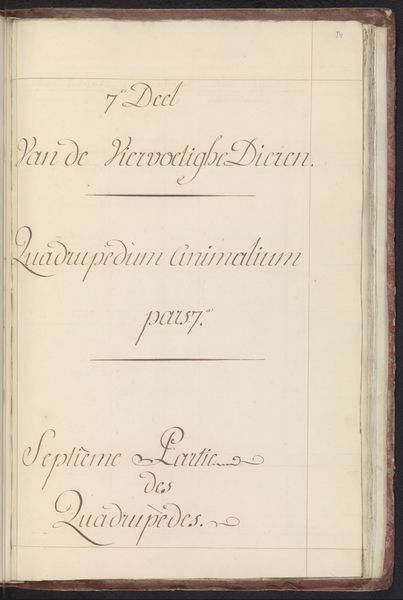 7.e Deel
Van de Viervoetighe Dieren.
Quadrupedium Animalium
pars 7.a
Septieme Partie
des
Quadrupèdes.